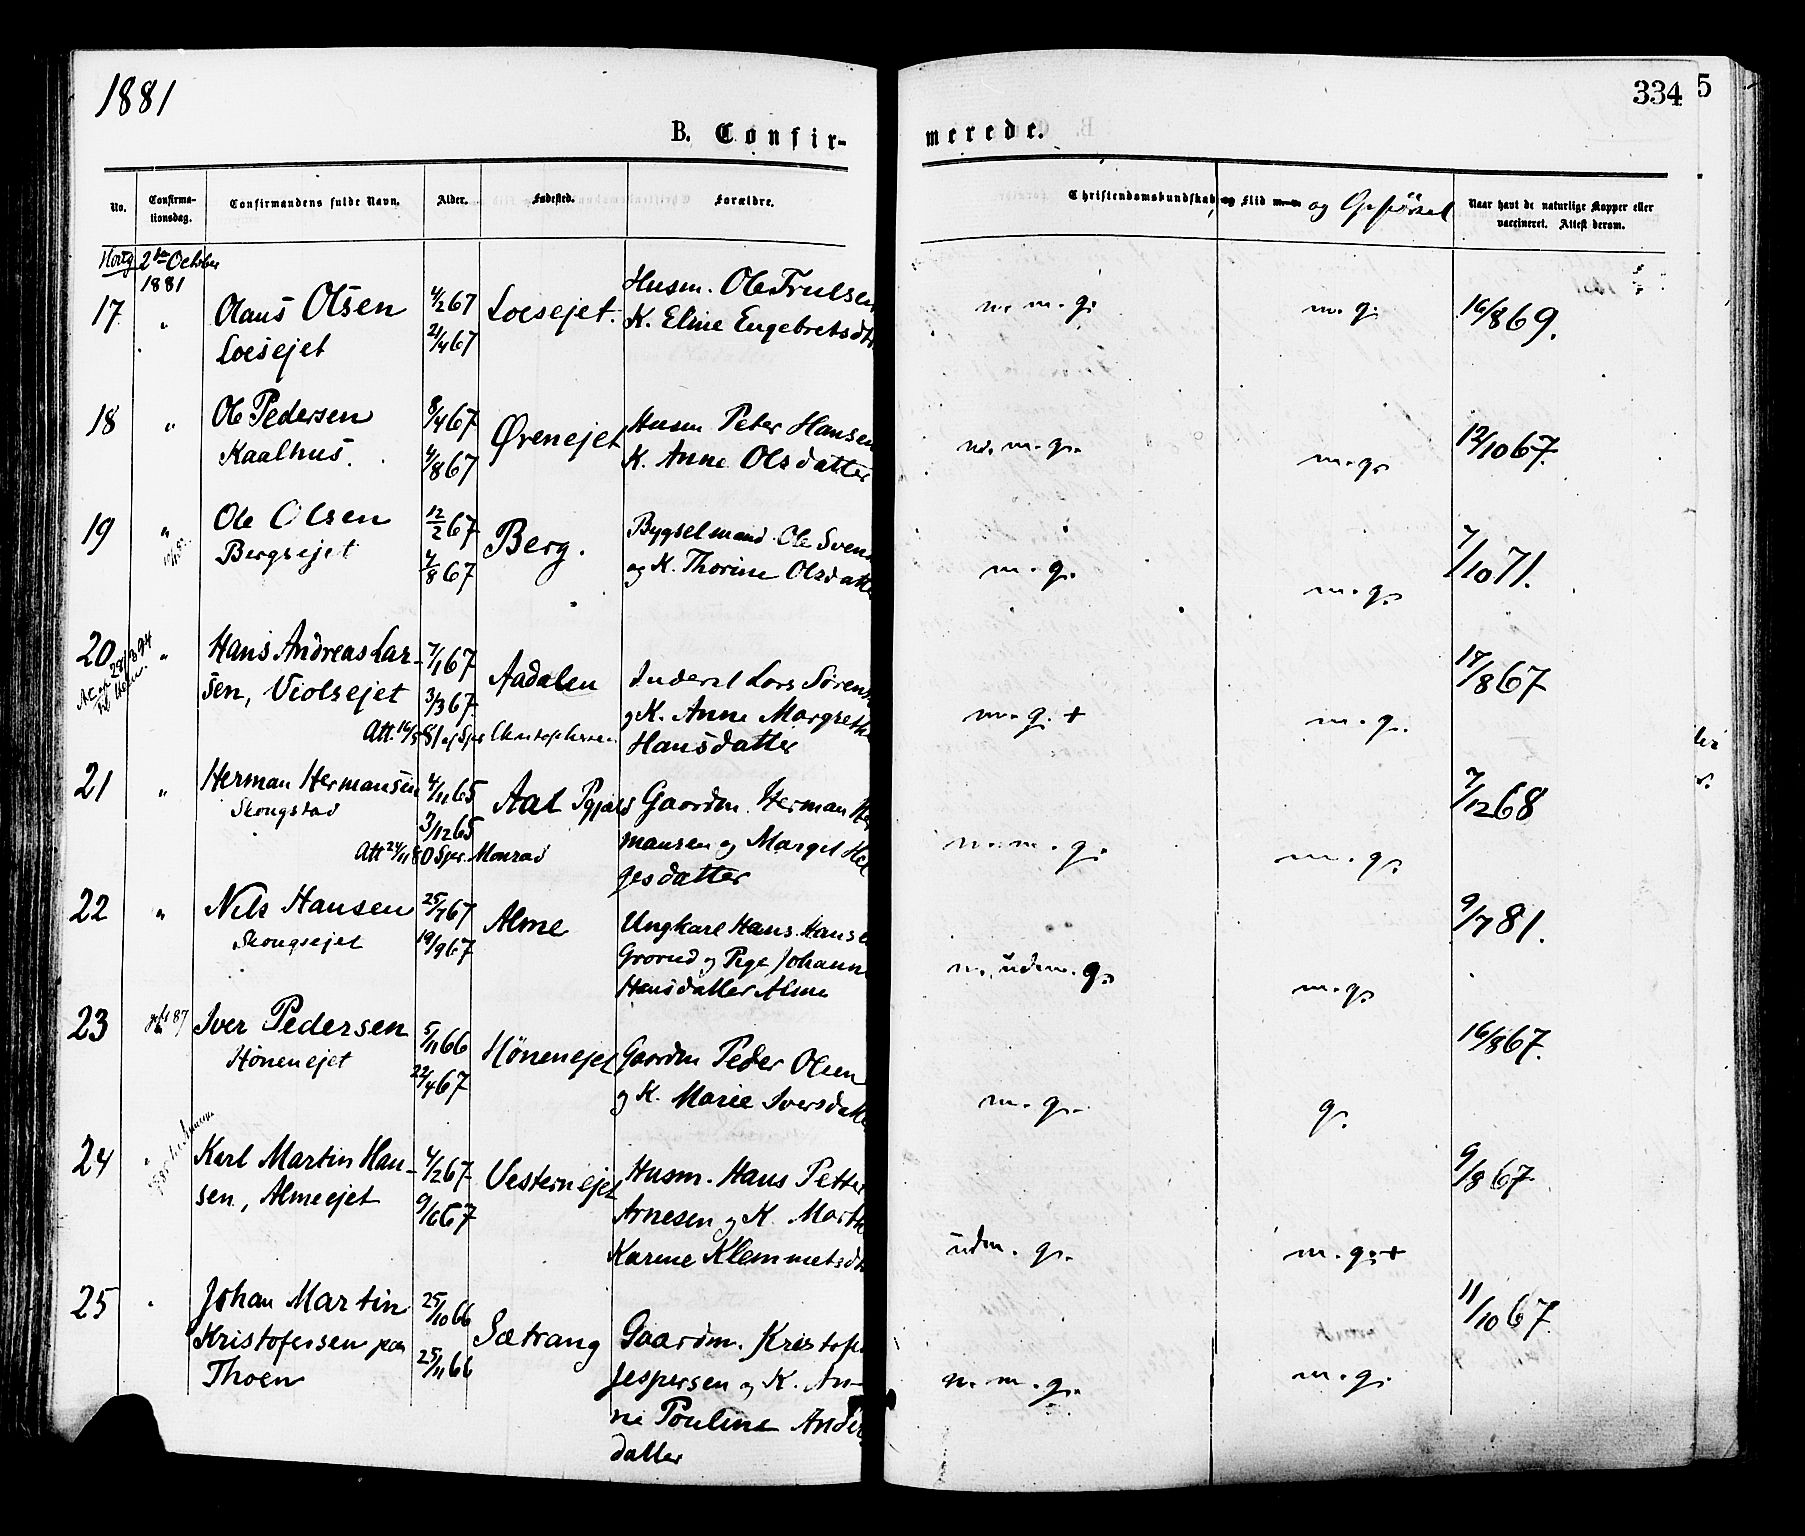 1881
334
5
B. Confir-
merede.
No.
Confirma-
tionsdag.
Confirmandens fulde Navn.
Alder.
Fødested.
Forældre.
Christendomskundskab og Flid og Opførsel
Naar havt de naturlige Kopper eller
vaccineret. Attest derom.
2den October
1881
17 " Olaus Olsen 4/2 67 Loesejet. Husm. Ole Trulsen m. g. m. g. 16/8 69.
Loesejet 21/4 67 K. Eline Engebretsdt
18 " Ole Pedersen 8/4 67 Ørenejet Husm Peter Hansen m. g. m. g. 12/10 67.
Kaalhus. 4/8 67 K. Anne Olsdatter
19 " Ole Olsen 12/2 67 Berg. Bygselmand Ole Svens m. g. m. g. 7/10 71.
Bergsejet 4/8 67 og K. Thorine Olsdatte
20 " Hans Andreas Lar- 7/1 67 Aadalen Inderst Lars Sørens m. g. + m. g. 17/8 67
sen, Violsejet 3/3 67. g K. Anne Margrethe
Att. 16/5 81 af Spr Christophersen Hansdatter
21 " Herman Hermansen 4/11 65 Aal Pgjæld Gaardm. Herman Her m. g. m. g. 7/12 68
Skongstad 3/12 65 mansen og Margit Hel
Att 24/11 80 Spr. Monrad gesdatter
22 " Nils Hansen 25/7 67 Alme Ungkarl Hans Hanse udm. g. m. g. 9/7 81.
Skongsejet 19/9 67 Grorud og Pige Johann
Hansdatter Alme
23 Iver Pedersen 5/11 66 Hönenejet Gaardm Peder Olsen m. g. g. 16/8 67.
Hönenejet 22/4 67 g K. Marie Iversdatte
24 " Karl Martin Han- 4/2 67 Vesternejet Husm. Hans Petter udm. g. m. g. + 9/8 67.
sen, Almeejet 9/6 67 Arnesen g K. Marth
Karine Klemmetsdt
25 " Johan Martin 25/10 66 Sætrang Gaardm. Kristofe m. g. m. g. 11/10 67.
Kristofersen paa 25/11 66 Jespersen g K. An-
Thoen ne Pouline Anders
datter